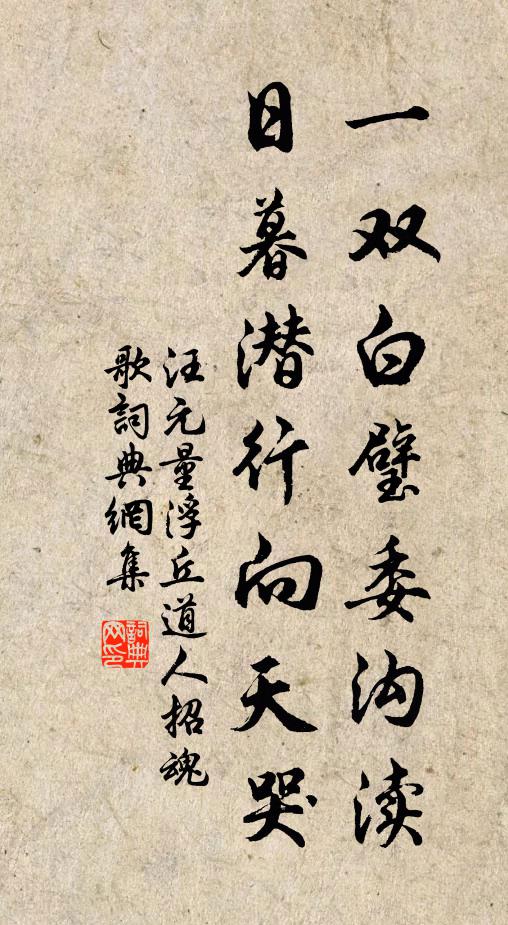 一双白璧委沟渎
日暮潜行向天哭
汪元量浮丘道人招魂
歌詞典網集
詞典
网印